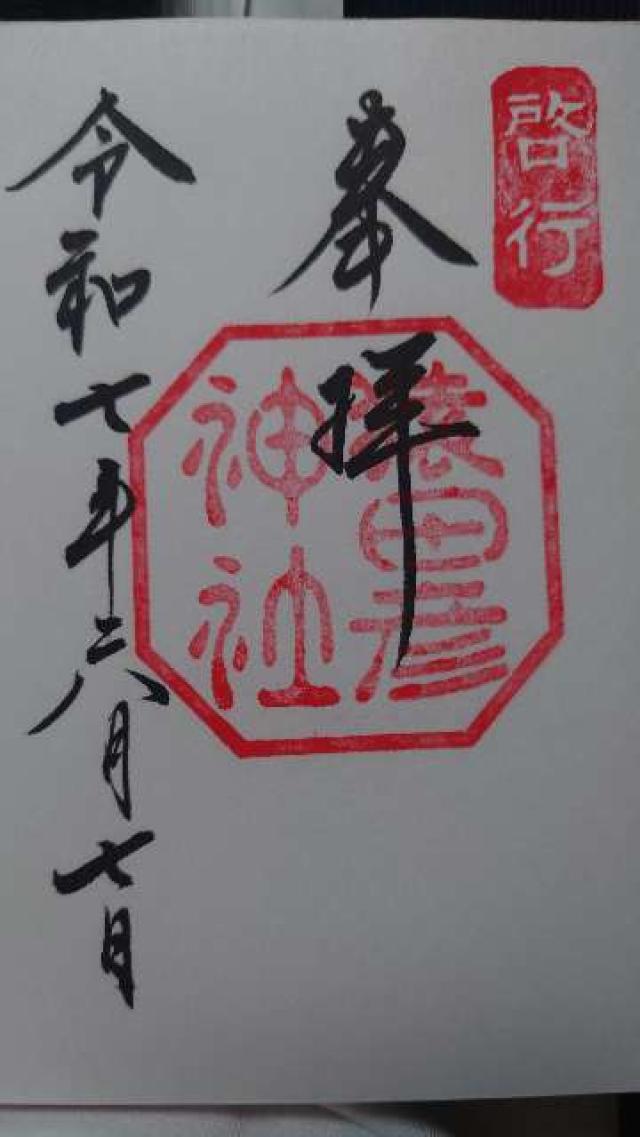 啓行
奉拝
猿田彦
神社
令和七年六月七日